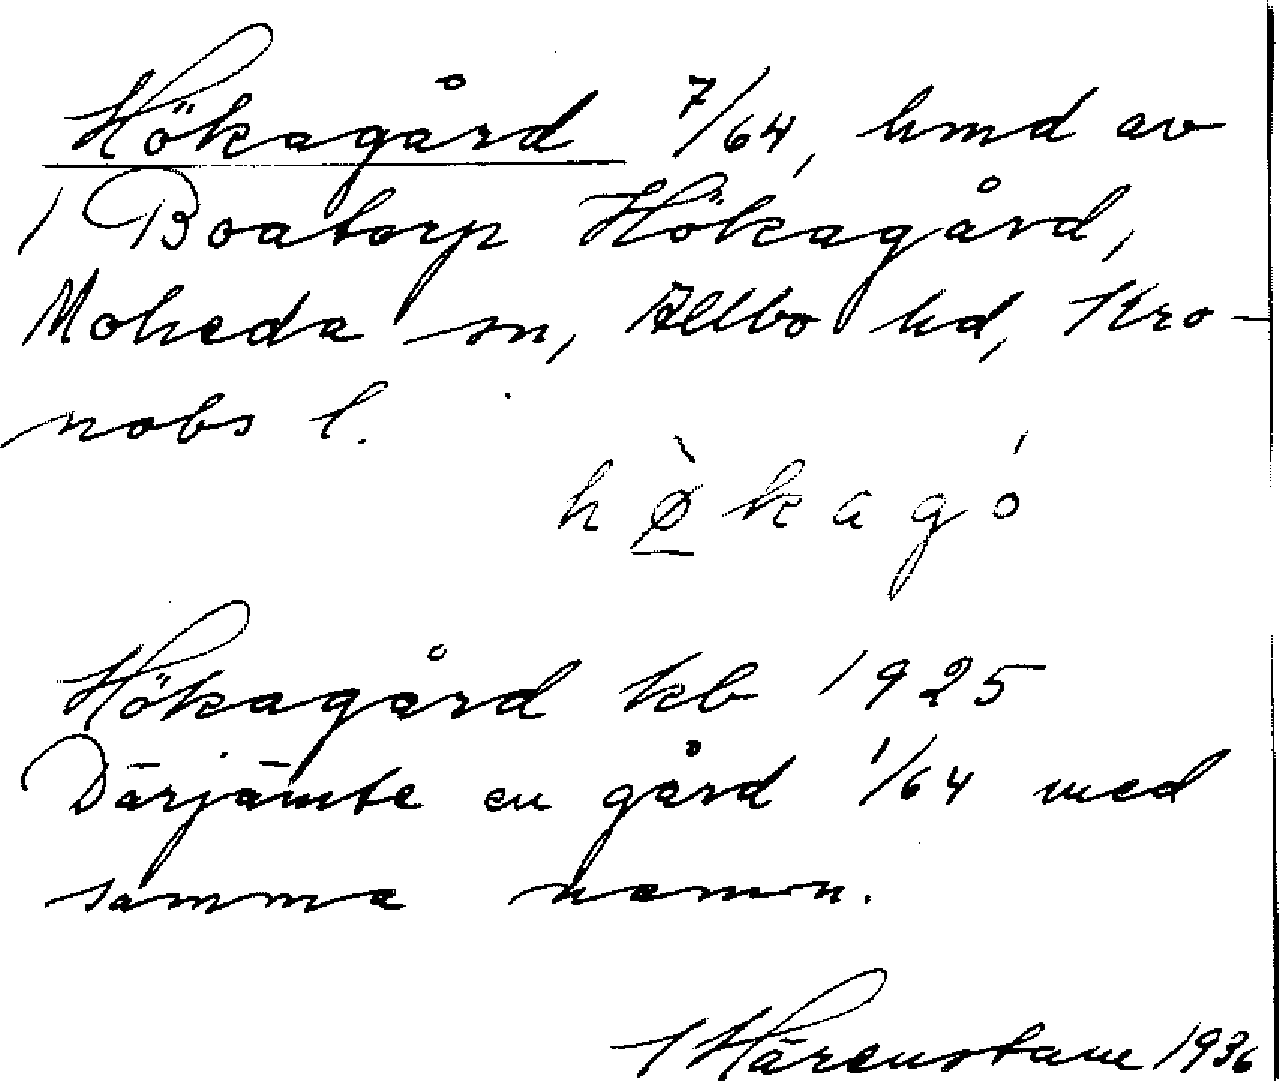 Hökagård 7/64, hmd av
1 Boatorp Hökagård,
Moheda sn, Allbo hd, Kro-
nobs l.
hø̀kagó
Hökagård kb 1925
Därjämte en gård 1/64 med
samma namn.
Härenstam 1936